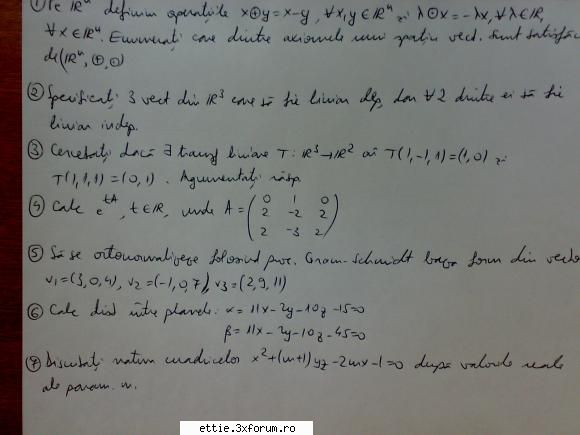 ① Pe ℝⁿ definim operațiile x⊕y=x-y, ∀x,y∈ℝⁿ și λ⊙x=-λx, ∀λ∈ℝ,
∀x∈ℝⁿ. Enumerați care dintre axiomele unui spațiu vect. sunt satisfăc
de (ℝⁿ,⊕,⊙)
② Specificați 3 vect din ℝ³ care să fie liniar dep, dar ∀2 dintre ei să fie
liniar indep.
③ Cercetați dacă ∃ transf liniare T: ℝ³→ℝ² aî T(1,-1,1)=(1,0) și
T(1,1,1)=(0,1). Argumentați răsp.
④ Calc e^{tA}, t∈ℝ, unde A = ( 0 1 0
2 -2 2
2 -3 2 )
⑤ Să se ortonormalizeze folosind proc. Gram-Schmidt baza form din vecto
v₁=(3,0,4), v₂=(-1,0,7), v₃=(2,9,11)
⑥ Calc dist între planele: α=11x-2y-10z-15=0
β=11x-2y-10z-45=0
⑦ Discutați natura cuadricelor x²+(m+1)yz-2mx-1=0 după valorile reale
ale param. m.
ettie.3xforum.ro